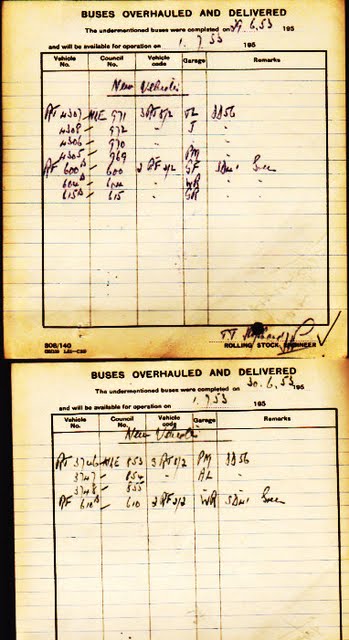 BUSES OVERHAULED AND DELIVERED
The undermentioned buses were completed on 29.6.53 195
and will be available for operation on 1.7.53 195
Vehicle No. Council No. Vehicle code Garage Remarks
New Vehicles
RT 4307 MLE 971 3RT8/2 38 56
4308 972 J "
4306 970 " "
4305 969 PM
RF 600 600 2RF2/2 GF Green
604 " WR "
615 615 " GR
808/140
ROLLING STOCK ENGINEER
BUSES OVERHAULED AND DELIVERED
The undermentioned buses were completed on 30.6.53 195
and will be available for operation on 1.7.53 195
Vehicle No. Council No. Vehicle code Garage Remarks
New Vehicles
RT 3746 853 3RT8/2 PM 38 56
3747 854 " AL "
3748 855 " "
RF 610 610 2RF2/2 WR Green